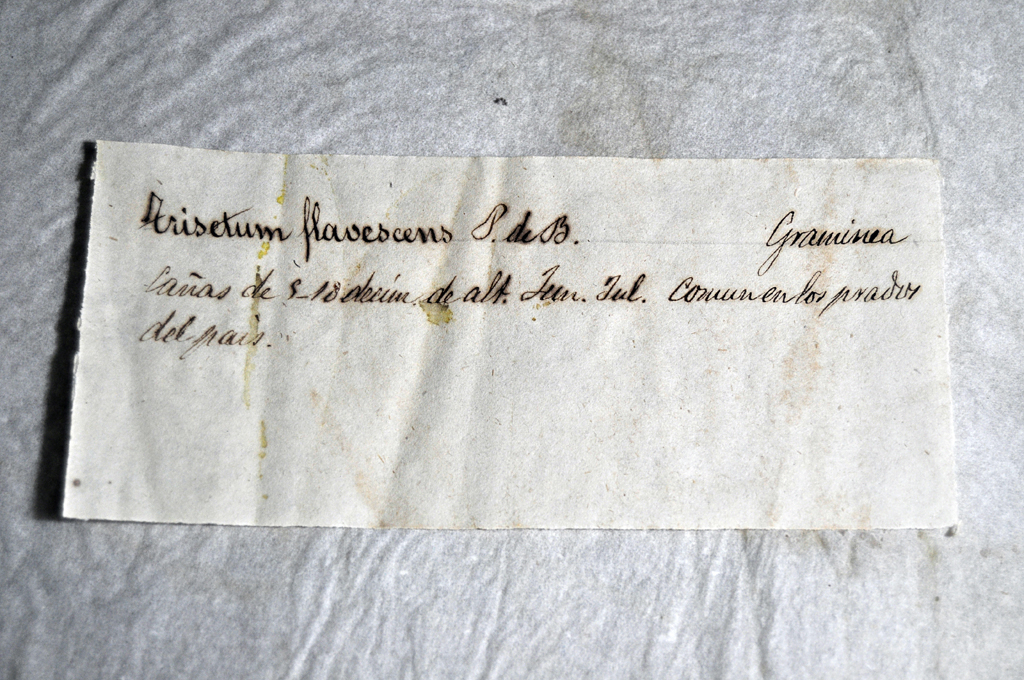 Trisetum flavescens P. de B. Graminea
Cañas de 5-10 decím. de alt. Jun. Jul. Comun en los prados
del pais.